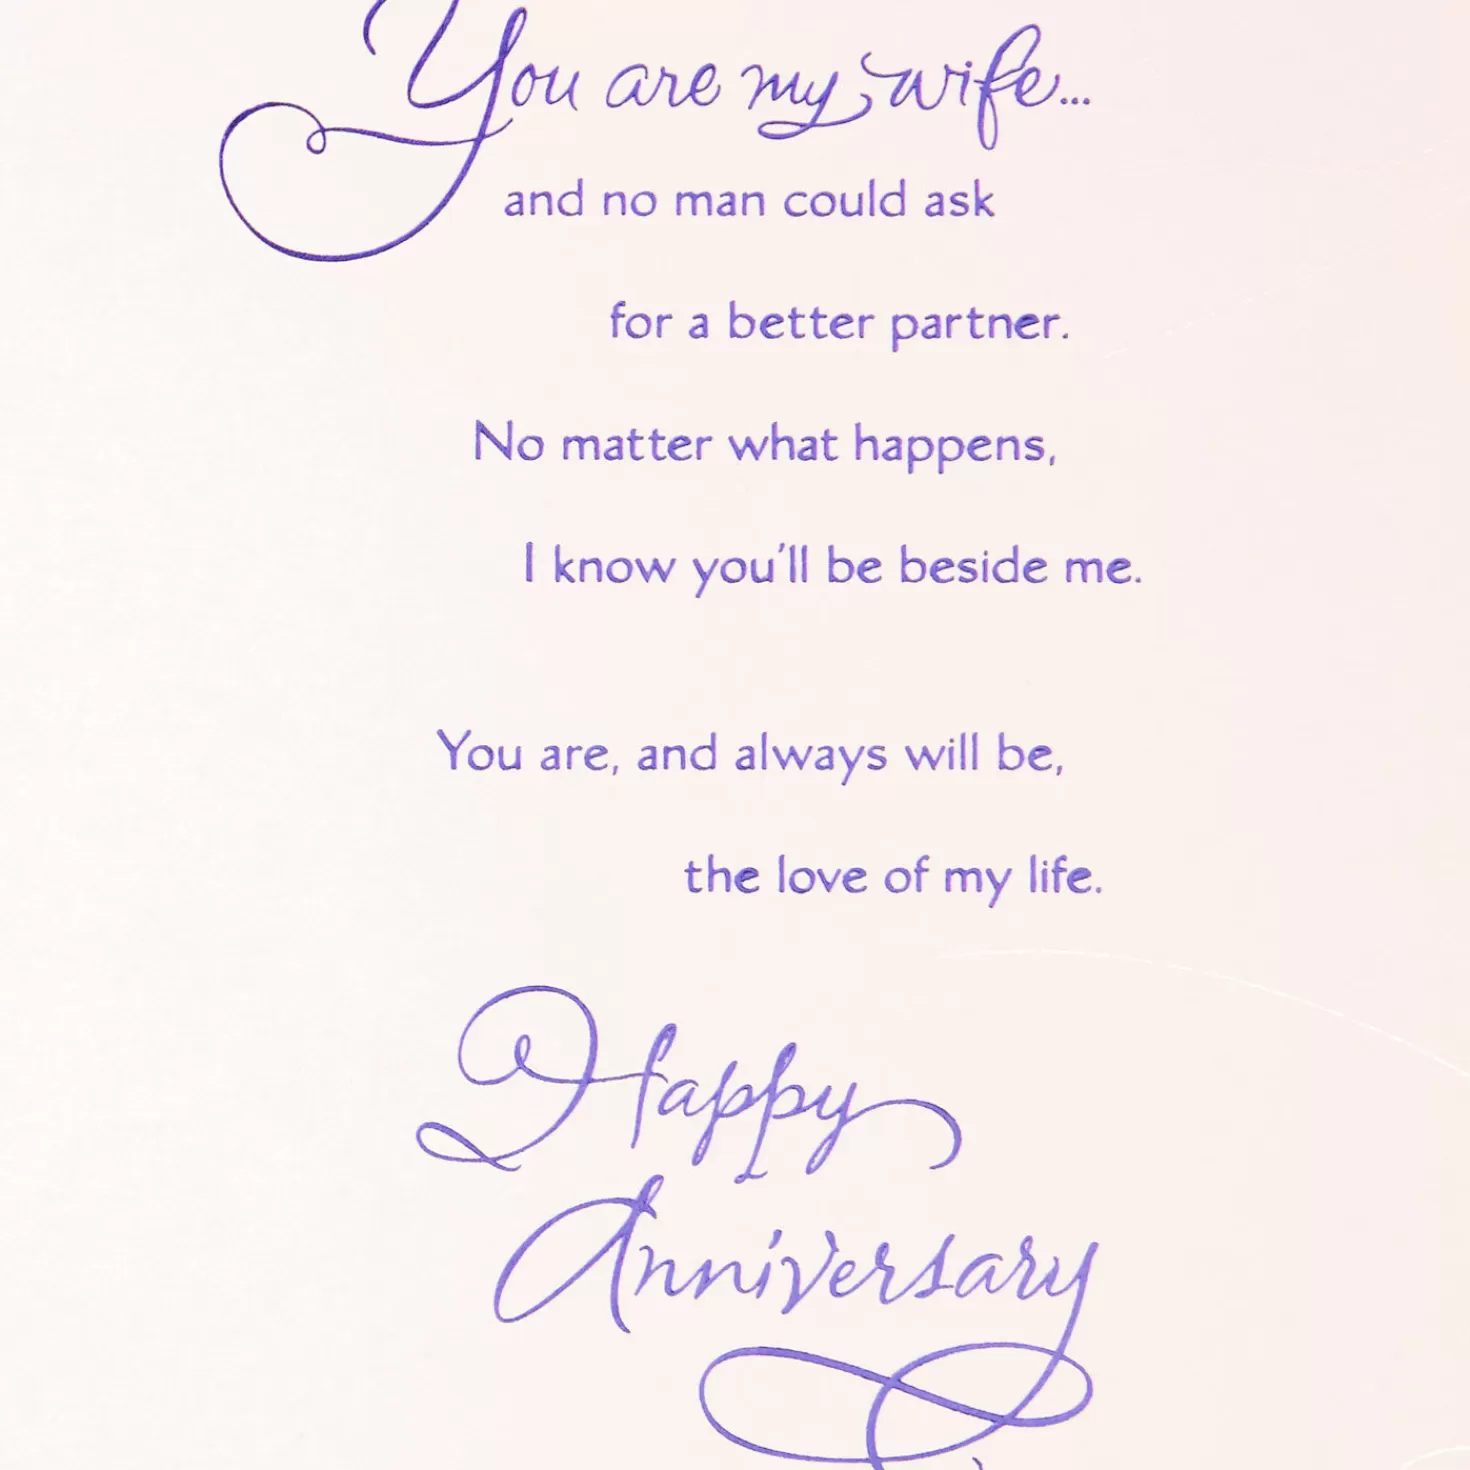 You are my wife...
and no man could ask
for a better partner.
No matter what happens,
I know you'll be beside me.
You are, and always will be,
the love of my life.
Happy
Anniversary